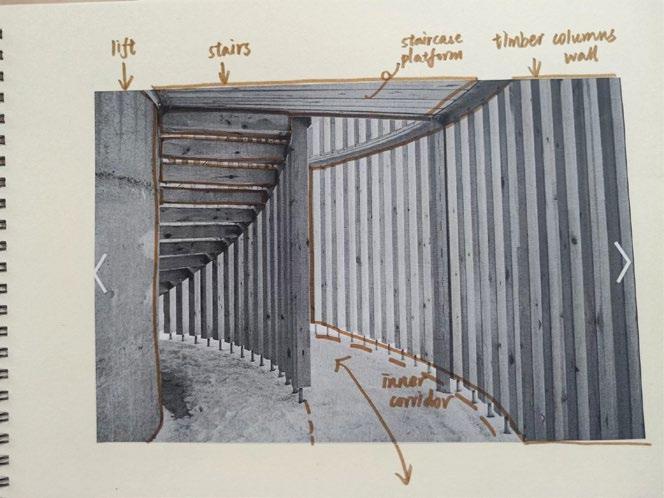 lift
stairs
staircase
platform
timber columns
wall
inner
corridor